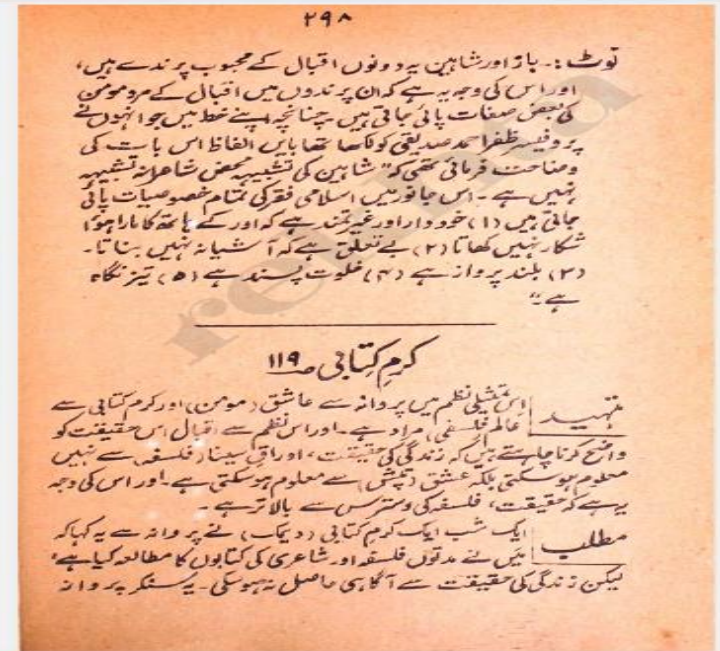 ۲۹۸
نوٹ :۔ باز اور شاہین یہ دونوں اقبال کے محبوب پرندے ہیں،
اور اس کی وجہ یہ ہے کہ ان پرندوں میں اقبال کے مرد مومن
کی بعض صفات پائی جاتی ہیں۔ چنانچہ اپنے خط میں جو انہوں نے
پروفیسر ظفر احمد صدیقی کو لکھا تھا بایں الفاظ اس بات کی
وضاحت فرمائی تھی کہ "شاہین کی تشبیہہ محض شاعرانہ تشبیہہ
نہیں ہے۔ اس جانور میں اسلامی فقر کی تمام خصوصیات پائی
جاتی ہیں (۱) خود دار اور غیرتمند ہے کہ اور کے ہاتھ کا مارا ہوا
شکار نہیں کھاتا (۲) بے تعلق ہے کہ آشیانہ نہیں بناتا۔
(۳) بلند پرواز ہے (۴) خلوت پسند ہے (۵) تیز نگاہ
ہے۔"
کرمِ کتابی صـ ۱۱۹
تمہید اِس تمثیلی نظم میں پروانہ سے عاشق (مومن) اور کرم کتابی سے
عالم (فلسفی) مراد ہے۔ اور اس نظم سے اقبال اس حقیقت کو
واضح کرنا چاہتے ہیں کہ زندگی کی حقیقت، اوراقِ سینا (فلسفہ) سے نہیں
معلوم ہو سکتی بلکہ عشق (تپش) سے معلوم ہو سکتی ہے۔ اور اس کی وجہ
یہ ہے کہ حقیقت، فلسفہ کی دسترس سے بالاتر ہے۔
مطلب ایک شب ایک کرم کتابی (دیمک) نے پروانہ سے یہ کہا کہ
میں نے مدتوں فلسفہ اور شاعری کی کتابوں کا مطالعہ کیا ہے،
لیکن زندگی کی حقیقت سے آگاہی حاصل نہ ہو سکی۔ یہ سنکر پروانہ